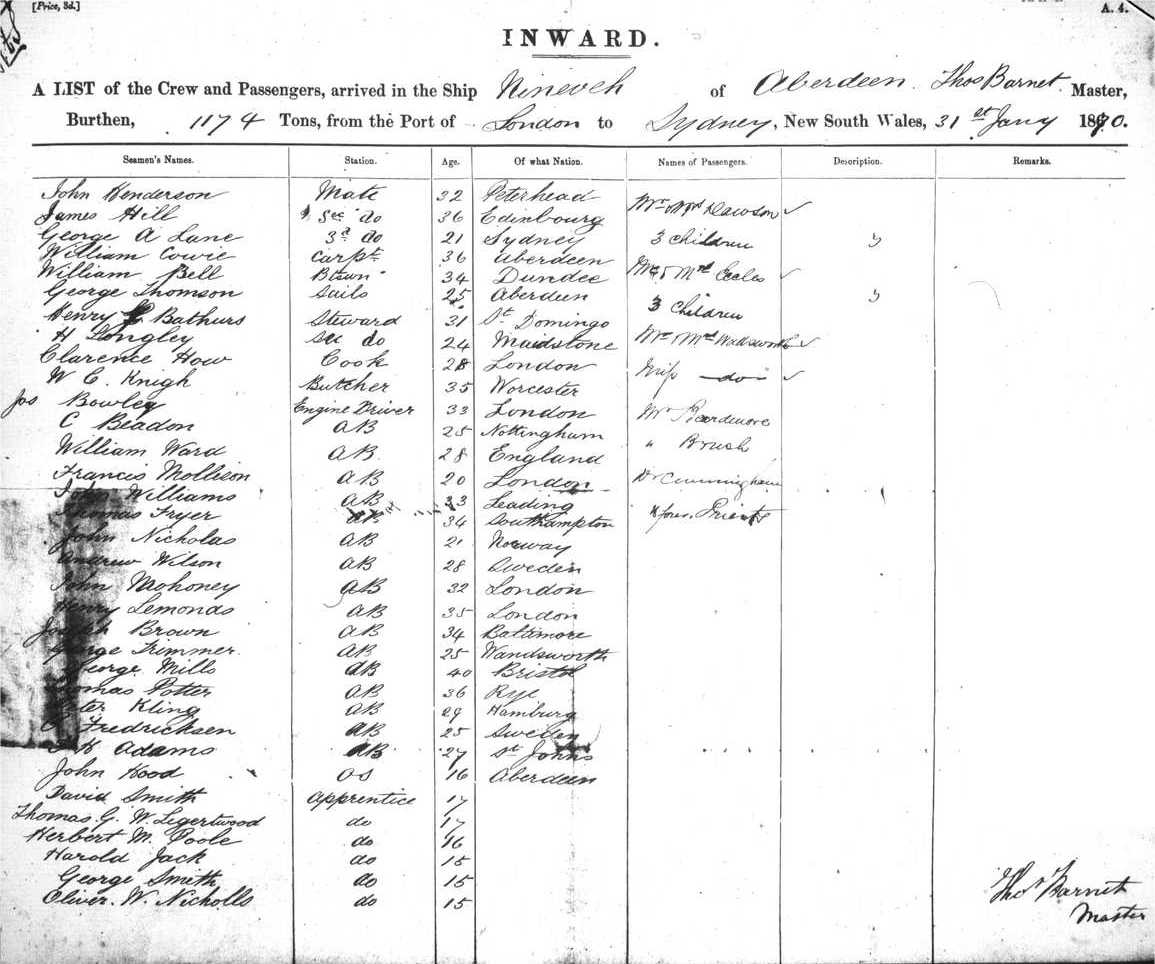 [Price, 3d.]
A. 4.
INWARD.
A LIST of the Crew and Passengers, arrived in the Ship Nineveh of Aberdeen. Thos Barnet Master,
Burthen, 1174 Tons, from the Port of London to Sydney, New South Wales, 31st Jany 1870.
Seamen's Names. Station. Age. Of what Nation. Names of Passengers. Description. Remarks.
John Henderson Mate 32 Peterhead Mr Mrs Dawson
James Hill Sec do 36 Edinbourg
George A Lane 3d do 21 Sydney 3 Children
William Cowie Carpt 36 Aberdeen
William Bell Btswn 34 Dundee Mr & Mrs Eccles
George Thomson Sails 25 Aberdeen
Henry Bathurs Steward 31 St Domingo 3 Children
H Longley sec do 24 Maidstone Mr Mrs Wadsworth
Clarence How Cook 28 London
W C. Knigh Butcher 35 Worcester Miss do
Jos Bowley Engine Driver 33 London Mr Beardmore
C Beadon AB 25 Nottingham " Brush
William Ward AB. 28 England
Francis Mollison AB 20 London Dr Cunningham
John Williams AB 33 Leading
Thomas Fryer AB 34 Southampton & four Priests
John Nicholas AB 21 Norway
Andrew Wilson AB 28 Sweden
John Mahoney AB 32 London
Henry Lemonds AB 35 London
Joseph Brown AB 34 Baltimore
George Trimmer. AB 25 Wandsworth
George Mills AB 40 Bristol
Thomas Potter AB 36 Rye
Peter Kling AB 29 Hamburg
Fredricksen AB 25 Sweden
H Adams AB 27 St Johns
John Hood OS 16 Aberdeen
David Smith Apprentice 17
Thomas. G. W. Legertwood do 17
Herbert M. Poole do 16
Harold Jack do 15
George Smith do 15
Oliver. W. Nicholls do 15
Thos Barnet
Master